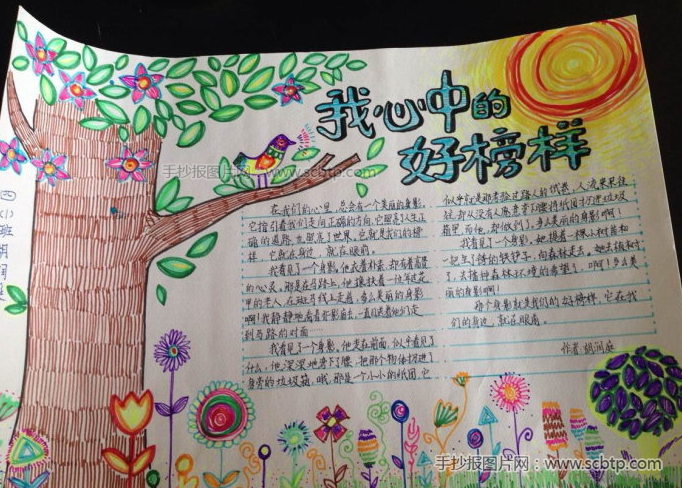 我心中的
好榜样
手抄报图片网：www.scbtp.com
四(1)班 胡润庭
在我们的心里,总会有一个美丽的身影,
它指引着我们走向正确的方向,它照亮了人生正
确的道路,也照亮了世界。它就是我们的榜
样,它就在身边,就在眼前。
我看见了一个身影。他衣着朴素,却有着富
的心灵。那是在马路上,他搀扶着一位年近花
甲的老人,在斑马线上走着,多么美丽的身影
啊!我静静地看着背影离去,一直目送着他们走
到马路的对面……
我看见了一个身影。他走在前面,似乎看见了
什么,他深深地弯下了腰,把那个物体扔进了
身旁的垃圾箱。哦,那是一个小小的纸团,它
似乎就是那考验过路人的试卷,人流来来往
往,却从没有人愿意弯下腰将纸团扔进垃圾
箱里,而他,却做到了,多么美丽的身影啊!
我看见了一个身影。她提着一棵小树苗和
一把生了锈的铁铲子,向森林走去。她去植树
了,去播种森林环境的希望了。啊!多么美
丽的身影啊!
那个身影就是我们的好榜样,它在我
们的身边,就在眼前。
作者:胡润庭
手抄报图片网：www.scbtp.com